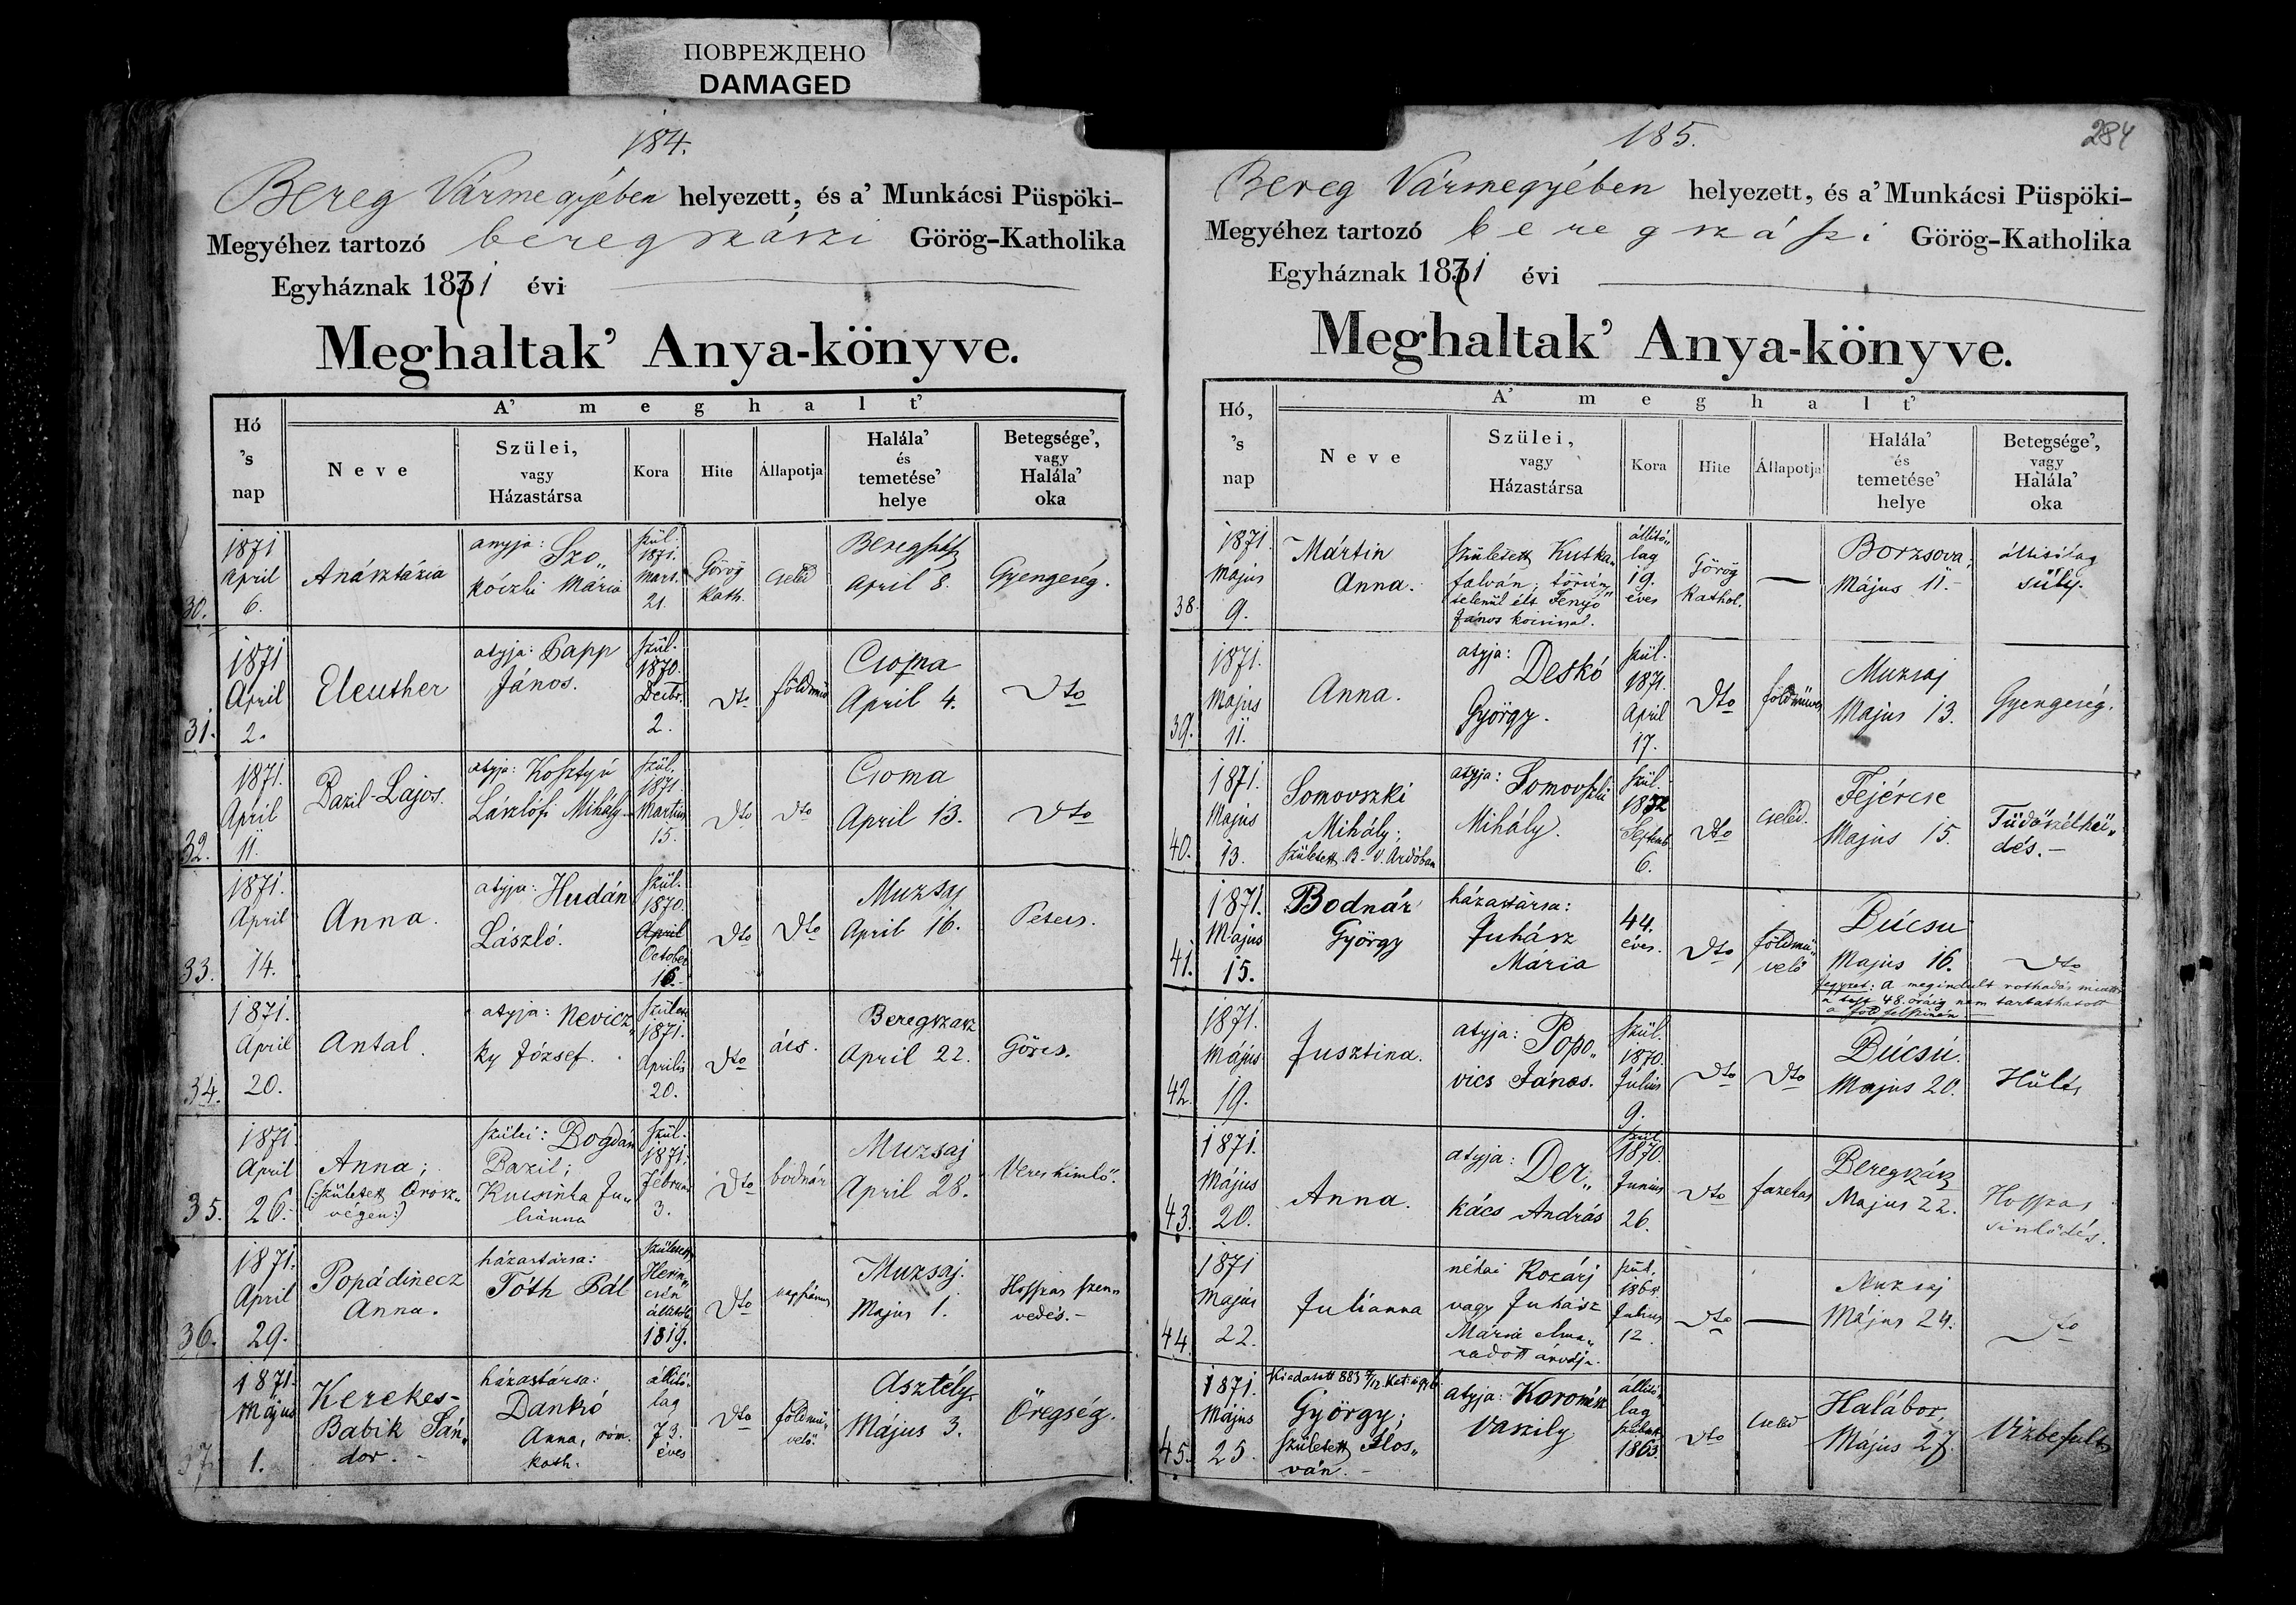 ПОВРЕЖДЕНО
DAMAGED
184.
Bereg Vármegyében helyezett, és a' Munkácsi Püspöki-
Megyéhez tartozó beregszászi Görög-Katholika
Egyháznak 1871 évi
Meghaltak' Anya-könyve.
Hó
's
nap
A' meghalt'
Neve
Szülei,
vagy
Házastársa
Kora
Hite
Állapotja
Halála'
és
temetése'
helye
Betegsége',
vagy
Halála'
oka
30.
1871
April
6.
Anásztázia
anyja: Szo„
kóczki Mária
szül.
1871.
Mart.
21.
Görög
kath.
cseléd
Beregszász
April 8.
Gyengeség.
31.
1871
April
2.
Eleuther
atyja: Papp
János.
szül.
1870.
Decbr.
2.
dto
földmű
Csoma
April 4.
dto
32.
1871.
April
11.
Bazil-Lajos.
atyja: Kosztyú
Lászlófi Mihály
szül.
1871
Martius
15.
dto
dto
Csoma
April 13.
dto
33.
1871.
April
14.
Anna.
atyja: Hudán
László.
szül.
1870.
April
October
16.
dto
dto
Muzsaj
April 16.
Petecs.
34.
1871.
April
20.
Antal.
atyja: Nevicz„
ky József.
1871.
Aprilis
20.
dto
ács.
Beregszász
April 22.
Görcs.
35.
1871.
April
26.
Anna;
(:született Orosz„
végen:)
szülei: Bogdán
Bazil;
Kucsinka Ju„
liánna
szül.
1871.
Február
3.
dto
bodnár
Muzsaj
April 28.
Veres himlő.
36.
1871.
April
29.
Popádinecz
Anna.
házastársa:
Tóth Pál
született
1819.
dto
napszámos
Muzsaj.
Majus 1.
Hosszas szen„
vedés.-
37.
1871.
Május
1.
Kerekes-
Babik Sán„
dor.-
házastársa:
Dankó
Anna, róm.
kath.
állító„
lag
73.
éves
dto
földmű„
velő.
Asztély.
Május 3.
Öregség.
185.
284
Bereg Vármegyében helyezett, és a' Munkácsi Püspöki-
Megyéhez tartozó beregszászi Görög-Katholika
Egyháznak 1871 évi
Meghaltak' Anya-könyve.
Hó,
's
nap
A' meghalt'
Neve
Szülei,
vagy
Házastársa
Kora
Hite
Állapotja
Halála'
és
temetése'
helye
Betegsége',
vagy
Halála'
oka
38.
1871.
Május
9.
Mártin
Anna.
született Kutka„
falván; törvény„
telenül élt Fenyő
János
állító„
lag
19.
éves
Görög
Kathol.
—
Borzsova;
Május 11.
állitólag
süly.
39.
1871.
Majus
11.
Anna.
atyja: Deskó
György.
szül.
1871.
April
17.
dto
földműves
Muzsaj
Majus 13.
Gyengeség.
40.
1871.
Majus
13.
Somovszki
Mihály;
született B.-V. Ardóban
atyja: Somovszki
Mihály.
szül.
1832
Septemb
6.
dto
cseléd.
Fejércse
Majus 15.
Tüdőszélhü„
dés.-
41.
1871.
Majus
15.
Bodnár
György
házastársa:
Juhász
Mária
44.
éves.
dto
földmű„
velő
Búcsu
Majus 16.
dto
Jegyzet: A megindult rothadás miatt
a test 48. óráig nem tartathatott
a föld felszinén.
42.
1871.
Május
19.
Jusztina.
atyja: Popo„
vics János.
szül.
1870.
Julius
9.
dto
dto
Búcsú.
Majus 20.
Hülés
43.
1871.
Május
20.
Anna.
atyja: Der„
kács András
szül.
1870.
Junius
26.
dto
fazekas
Beregszász
Majus 22.
Hosszas
sinlődés.
44.
1871
Majus
22.
Juliánna
néhai Kozárj
vagy Juhász
Mária elma„
radott árvája.
szül.
Julius
12.
dto
—
Muzsaj
Május 24.
dto
45.
1871.
Május
25.
György;
született Ilos„
ván.-
atyja:
Vaszily
állító„
lag
1863.
dto
cseléd
Halábor,
Május 27.
Vizbefult